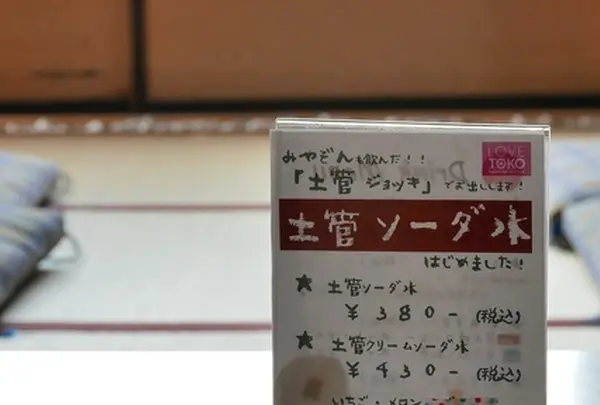 LOVE
TOKO
みやぞんも飲んだ!!
「土管ジョッキ」でお出しします!
土管ソーダ水
はじめました!
★ 土管ソーダ水
¥380-(税込)
★ 土管クリームソーダ水
¥430-(税込)
いちご・メロン